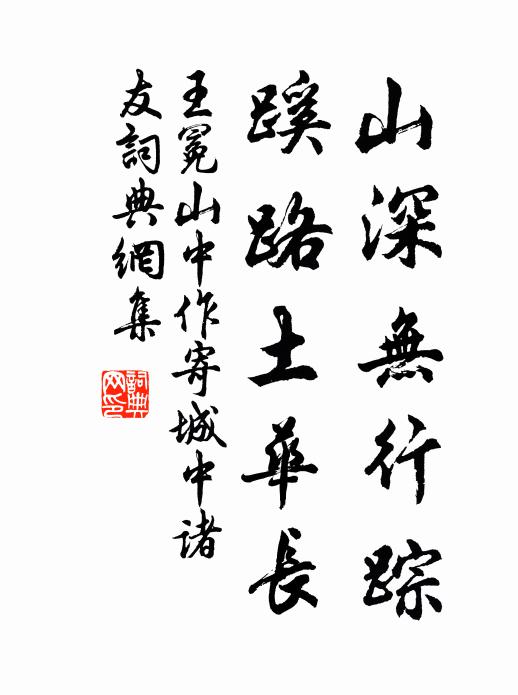 山深無行踪
蹊路土華長
王冕山中作寄城中諸
友詞典網集
詞典
网印